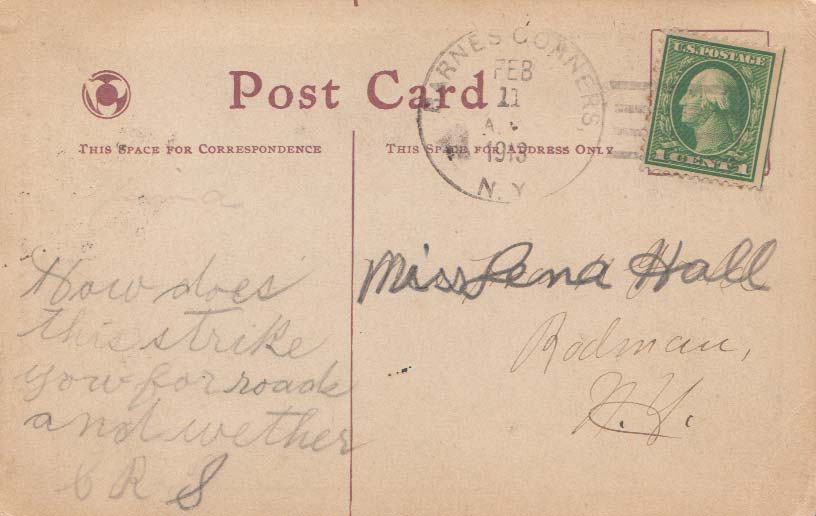 Post Card
THIS SPACE FOR CORRESPONDENCE
THIS SPACE FOR ADDRESS ONLY
BARNES CORNERS,
FEB
11
A.
1913
N.Y.
U.S. POSTAGE
1 CENT 1
How does
this strike
you for roads
and wether
C R S
Miss Lena Hall
Rodman,
N.Y.